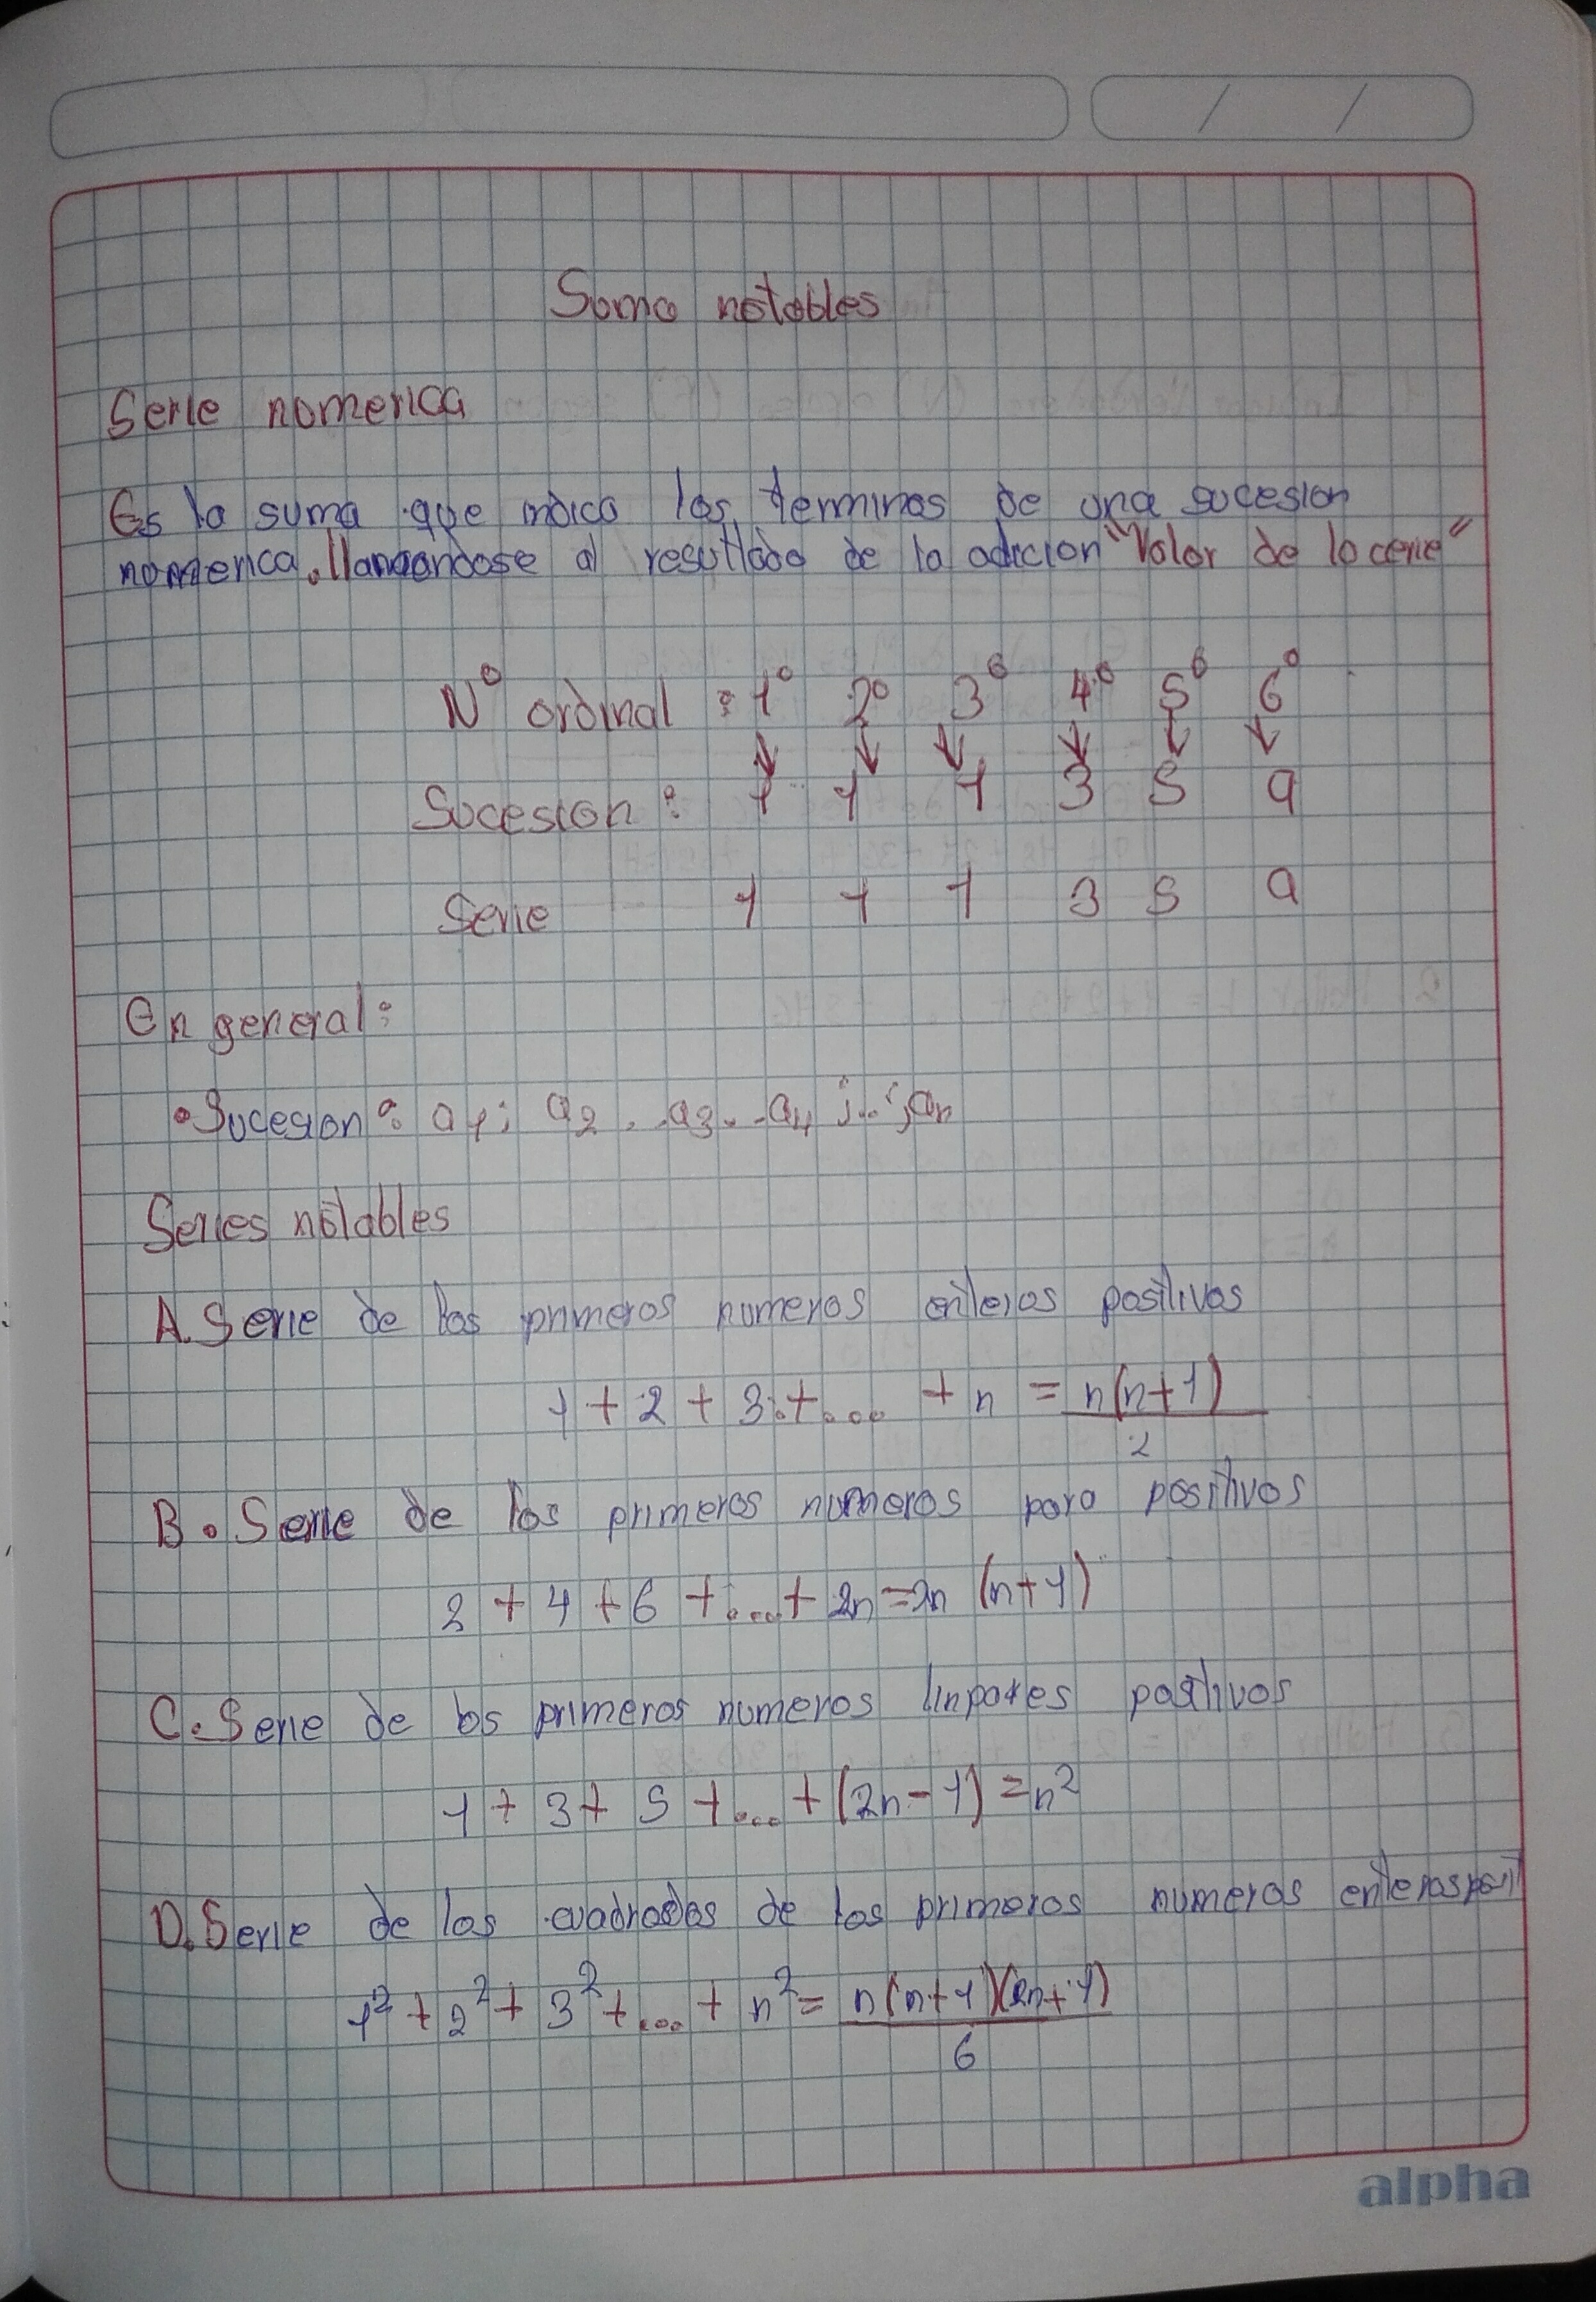 Suma notables
Serie numerica
Es la suma que indica los terminos de una sucesion
numerica, llamandose al resultado de la adicion "Valor de la cerie"
N° ordinal : 1° 2° 3° 4° 5° 6°
Sucesion : 1 1 1 3 5 9
Serie 1 1 1 3 5 9
En general:
• Sucesion : a1; a2 . . a3 . . a4 ; ..; an
Series notables
A. Serie de los primeros numeros enteros positivos
1 + 2 + 3 + .... + n = n(n+1)
2
B. Serie de los primeros numeros para positivos
2 + 4 + 6 + .... + 2n = 2n (n+1)
C. Serie de los primeros numeros impares positivos
1 + 3 + 5 + .... + (2n-1) = n²
D. Serie de los cuadrados de los primeros numeros enteros posit
1² + 2² + 3² + .... + n² = n(n+1)(2n+1)
6
alpha